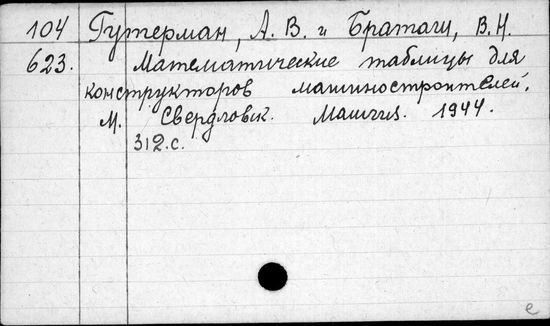 104 Гутерман, А. В. и Братащ, В. Н.
623. Математические таблицы для
конструкторов машиностроителей.
М. Свердловск. Машгиз. 1944.
312.с.
е